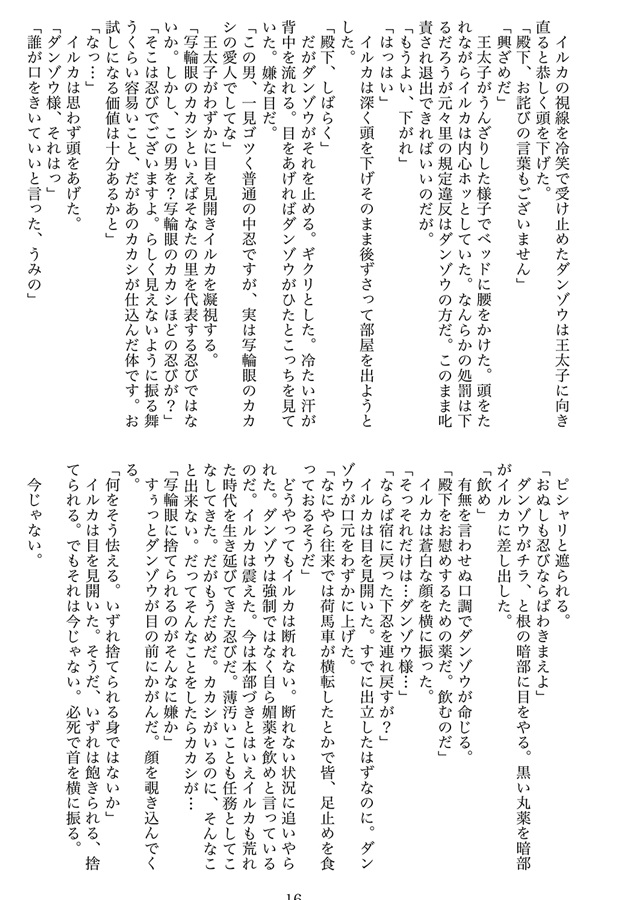 イルカの視線を冷笑で受け止めたダンゾウは王太子に向き
直ると恭しく頭を下げた。
「殿下、お詫びの言葉もございません」
「興ざめだ」
王太子がうんざりした様子でベッドに腰をかけた。頭をた
れながらイルカは内心ホッとしていた。なんらかの処罰は下
るだろうが元々里の規定違反はダンゾウの方だ。このまま叱
責され退出できればいいのだが。
「もうよい、下がれ」
「はっはい」
イルカは深く頭を下げそのまま後ずさって部屋を出ようと
した。
「殿下、しばらく」
だがダンゾウがそれを止める。ギクリとした。冷たい汗が
背中を流れる。目をあげればダンゾウがひたとこっちを見て
いた。嫌な目だ。
「この男、一見ゴツく普通の中忍ですが、実は写輪眼のカカ
シの愛人でしてな」
王太子がわずかに目を見開きイルカを凝視する。
「写輪眼のカカシといえばそなたの里を代表する忍びではな
いか。しかし、この男を？写輪眼のカカシほどの忍びが？」
「そこは忍びでございますよ。らしく見えないように振る舞
うくらい容易いこと、だがあのカカシが仕込んだ体です。お
試しになる価値は十分あるかと」
「なっ…」
イルカは思わず頭をあげた。
「ダンゾウ様、それはっ」
「誰が口をきいていいと言った、うみの」
ピシャリと遮られる。
「おぬしも忍びならばわきまえよ」
ダンゾウがチラ、と根の暗部に目をやる。黒い丸薬を暗部
がイルカに差し出した。
「飲め」
有無を言わせぬ口調でダンゾウが命じる。
「殿下をお慰めするための薬だ。飲むのだ」
イルカは蒼白な顔を横に振った。
「そっそれだけは…ダンゾウ様…」
「ならば宿に戻った下忍を連れ戻すが？」
イルカは目を見開いた。すでに出立したはずなのに。ダン
ゾウが口元をわずかに上げた。
「なにやら往来では荷馬車が横転したとかで皆、足止めを食
っておるそうだ」
どうやってもイルカは断れない。断れない状況に追いやら
れた。ダンゾウは強制ではなく自ら媚薬を飲めと言っている
のだ。イルカは震えた。今は本部づきとはいえイルカも荒れ
た時代を生き延びてきた忍びだ。薄汚いことも任務としてこ
なしてきた。だがもうだめだ。カカシがいるのに、そんなこ
と出来ない。だってそんなことをしたらカカシが…
「写輪眼に捨てられるのがそんなに嫌か」
すぅっとダンゾウが目の前にかがんだ。顔を覗き込んでく
る。
「何をそう怯える。いずれ捨てられる身ではないか」
イルカは目を見開いた。そうだ、いずれは飽きられる、捨
てられる。でもそれは今じゃない。必死で首を横に振る。
今じゃない。
16